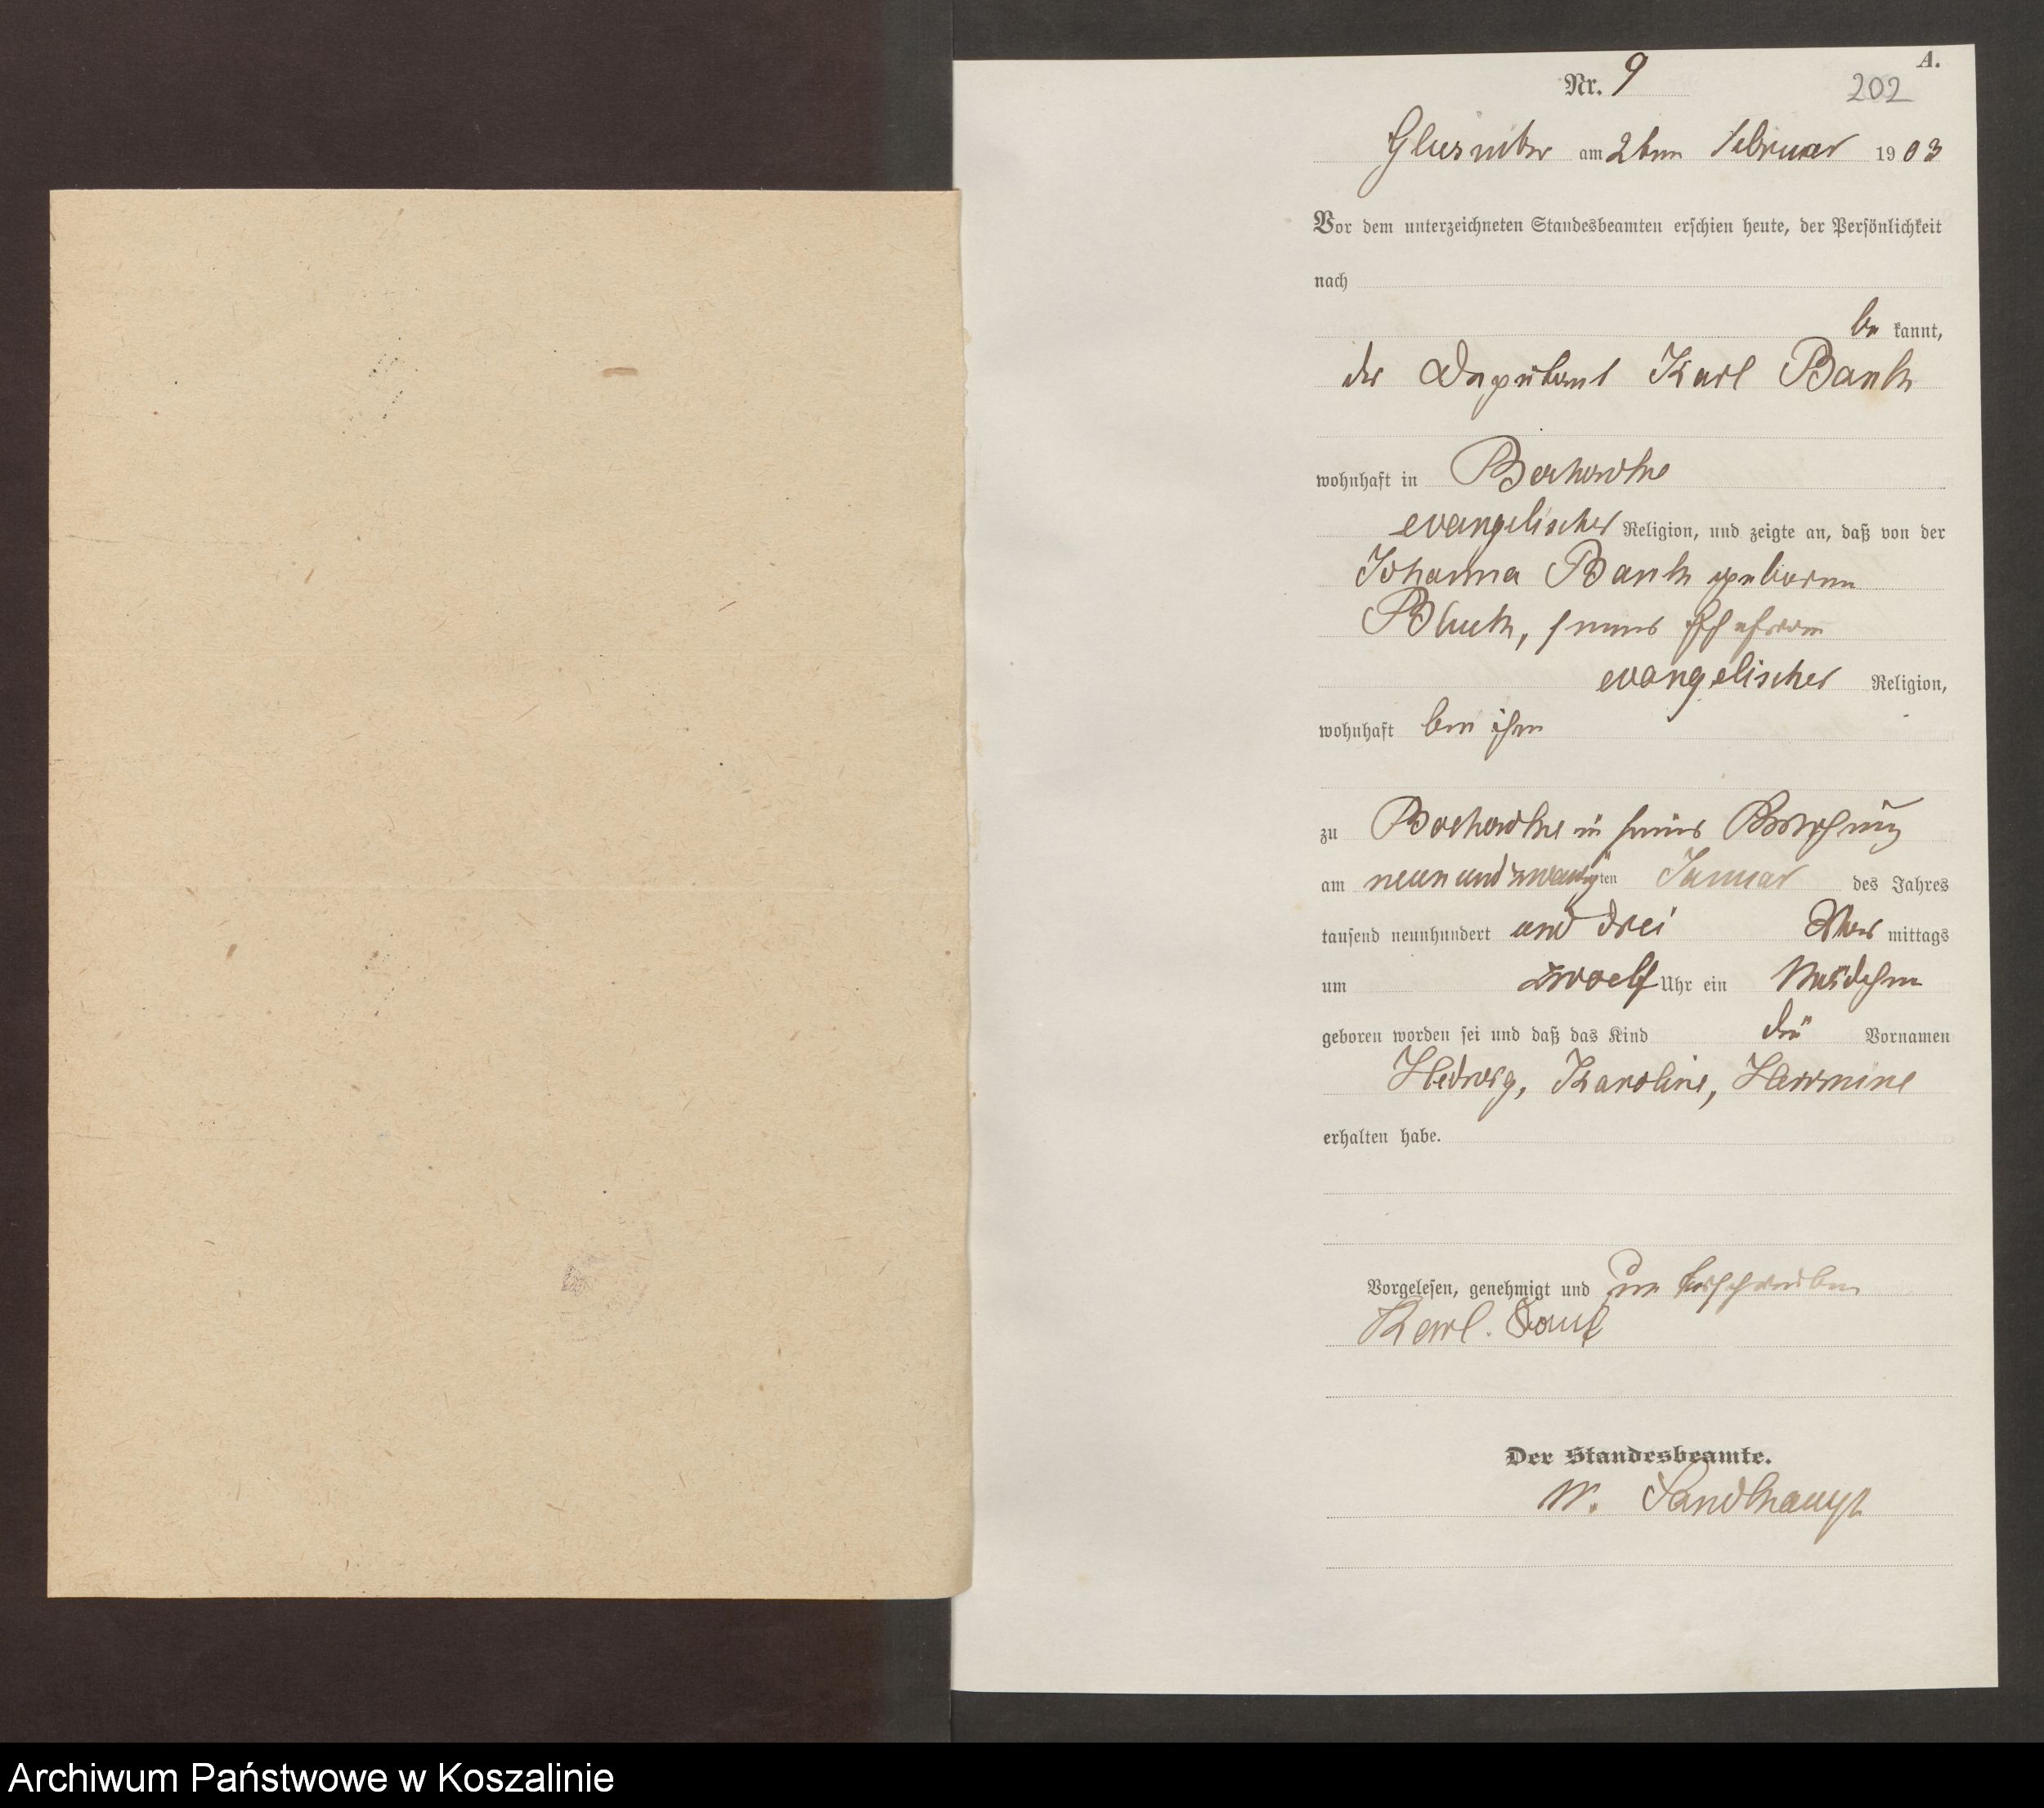 A.
Nr. 9
202
am 2ten Februar 1903
Vor dem unterzeichneten Standesbeamten erschien heute, der Persönlichkeit
nach
be kannt,
der Deputant Karl Bank
wohnhaft in
evangelischer Religion, und zeigte an, daß von der
Johanna Bank geborene
seiner Ehefrau
evangelischer Religion,
wohnhaft bei ihm
zu in seiner
am neunundzwanzigten Januar des Jahres
tausend neunhundert und drei Vor mittags
um zwoelf Uhr ein Mädchen
geboren worden sei und daß das Kind die Vornamen
Hedwig, Karoline, Hermine
erhalten habe.
Vorgelesen, genehmigt und unterschrieben
Karl.
Der Standesbeamte.
W.
Archiwum Państwowe w Koszalinie